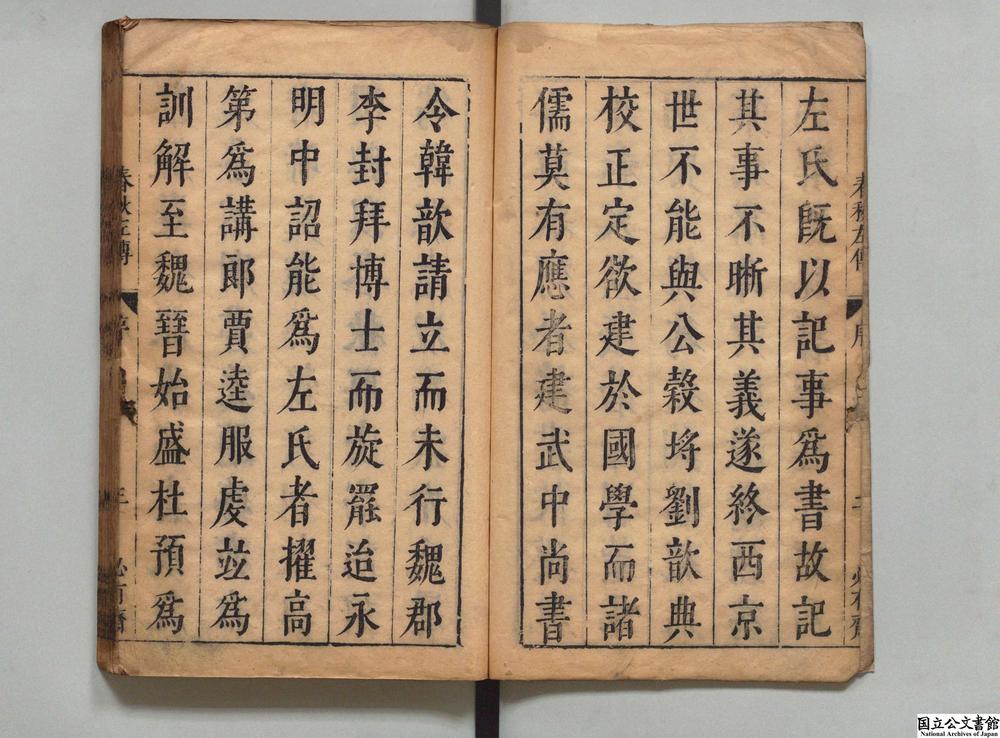 左氏旣以記事爲書故記
其事不晰其義遂終西京
世不能與公穀埒劉歆典
校正定欲建於國學而諸
儒莫有應者建武中尚書
令韓歆請立而未行魏郡
李封拜博士而旋罷迨永
明中詔能爲左氏者擢高
第爲講郞賈逵服虔竝爲
訓解至魏晉始盛杜預爲
春秋左傳
三
国立公文書館
National Archives of Japan